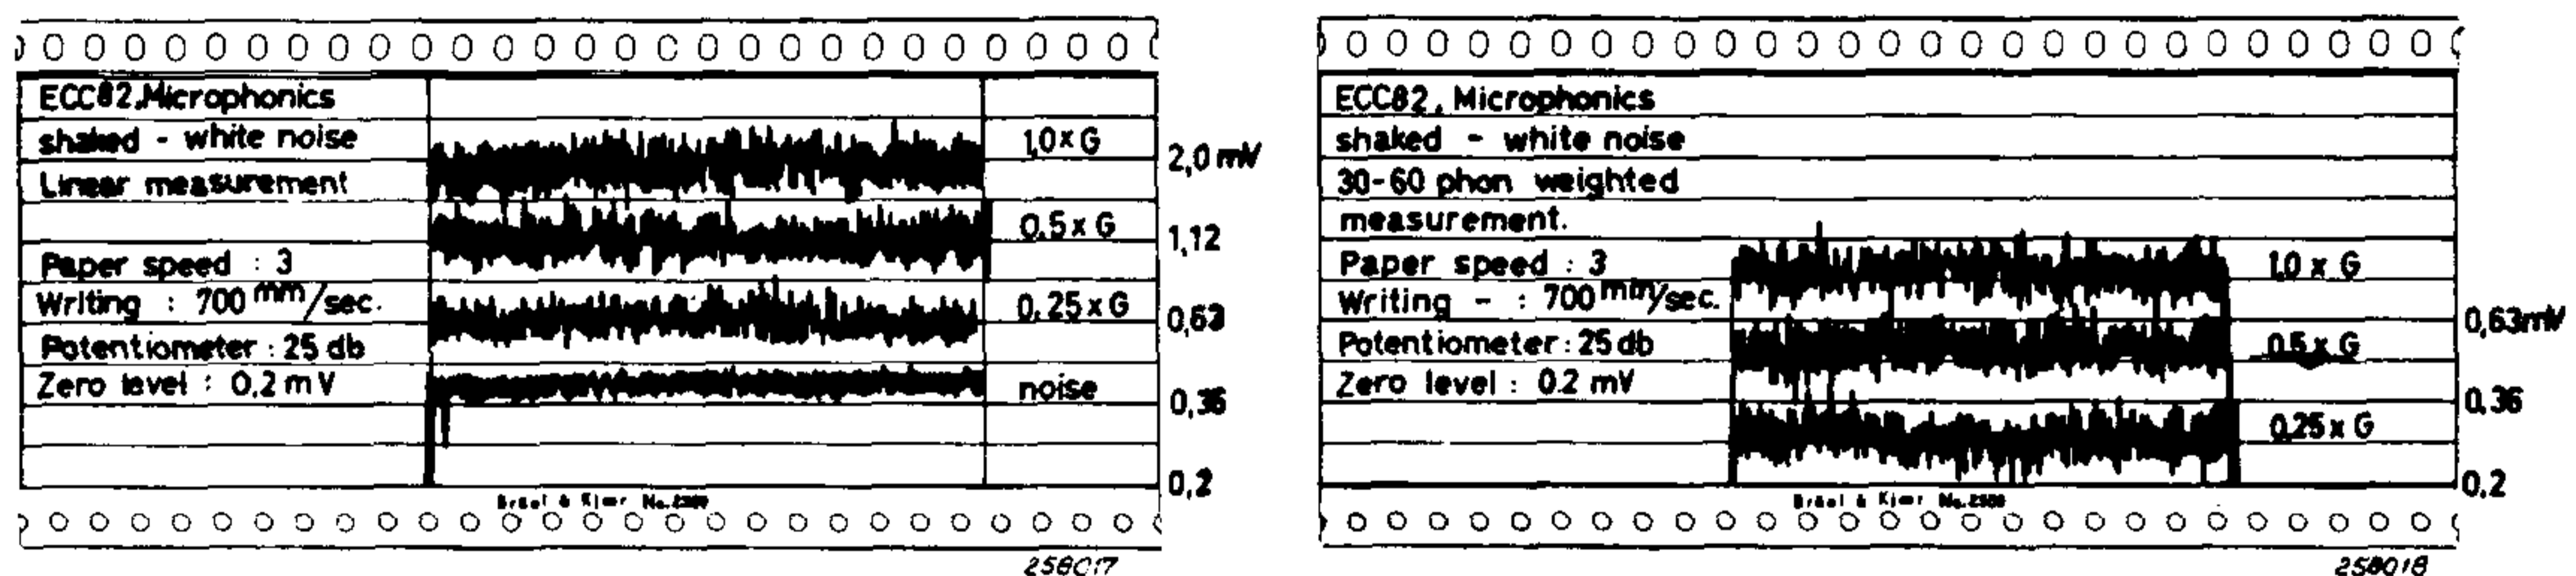 ECC82.Microphonics
shaked - white noise
Linear measurement
Paper speed : 3
Writing : 700 mm/sec.
Potentiometer : 25 db
Zero level : 0.2 mV
1,0 x G
0.5 x G
0.25 x G
noise
2,0 mV
1,12
0,63
0,36
0,2
Brüel & Kjær No.
258017
ECC82. Microphonics
shaked - white noise
30-60 phon weighted
measurement.
Paper speed : 3
Writing - : 700 mm/sec.
Potentiometer: 25 db
Zero level : 0.2 mV
1.0 x G
0.5 x G
0.25 x G
0,63mV
0.36
0.2
Brüel & Kjær No.
258018